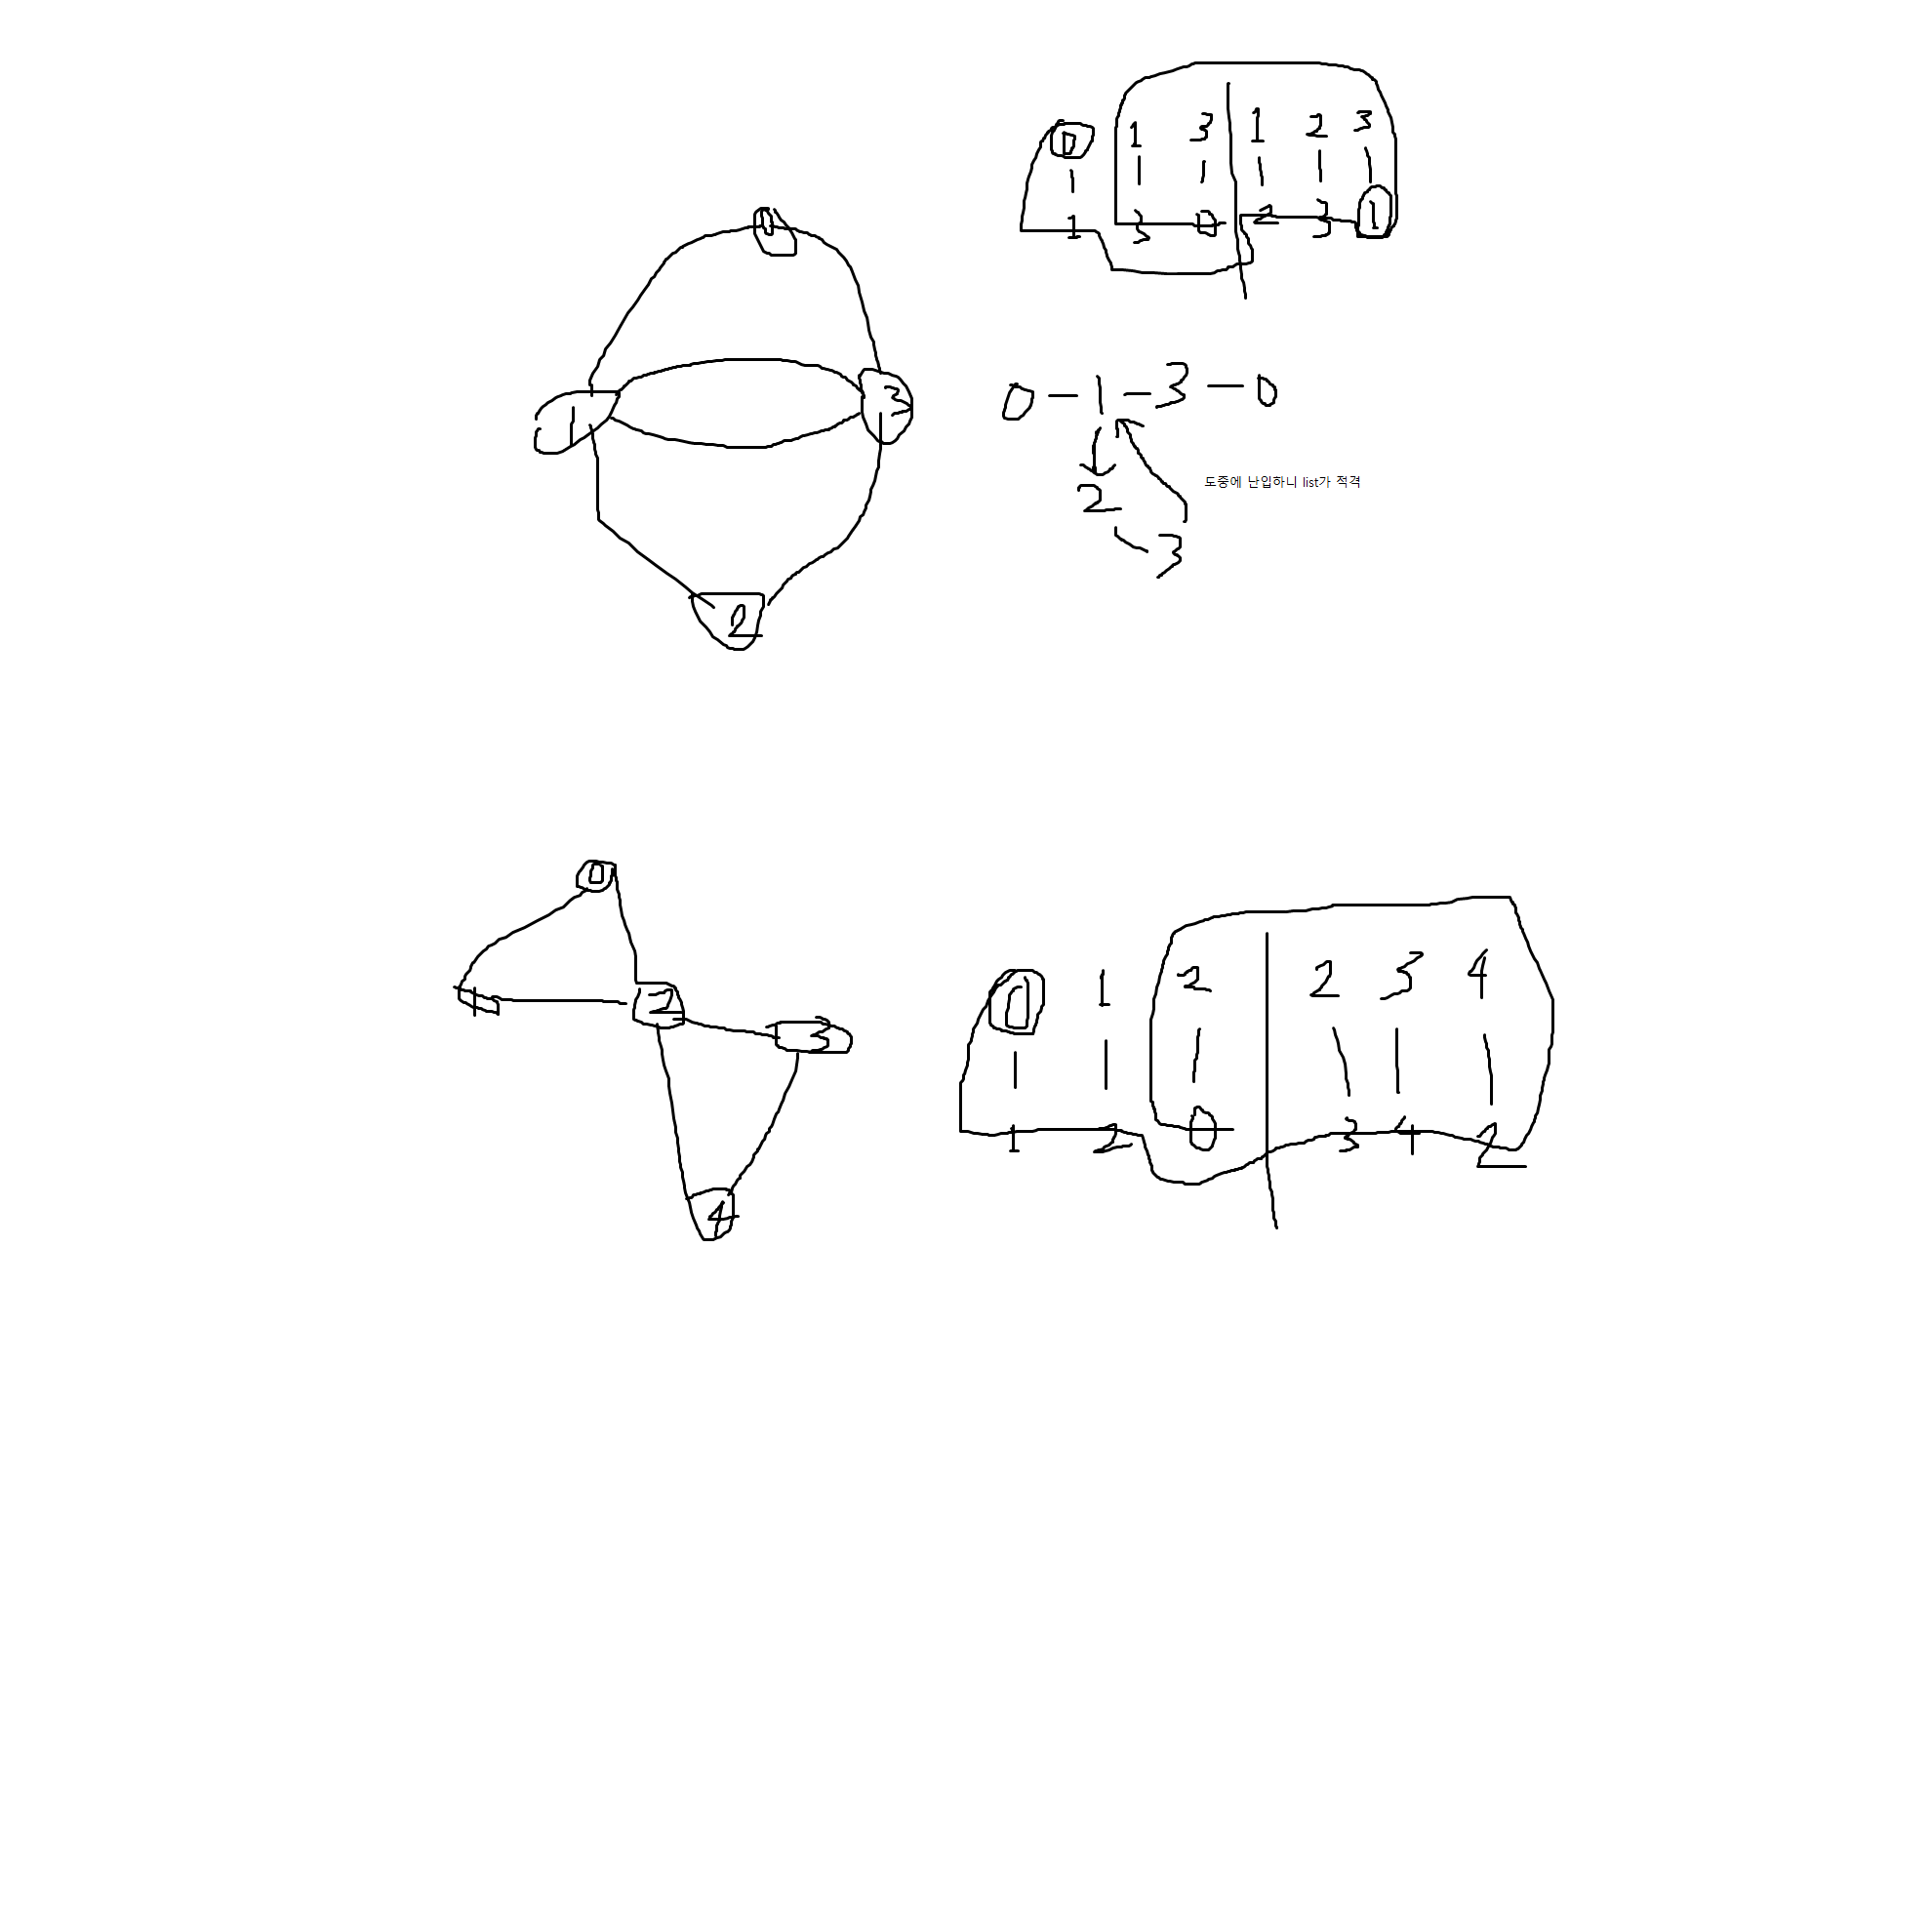 0
1 3
2
0 1 3 1 2 3
1 3 0 2 3 1
0 - 1 - 3 - 0
2
3
도중에 난입하니 list가 적격
0
1 2 3
4
0 1 2 2 3 4
1 2 0 3 4 2